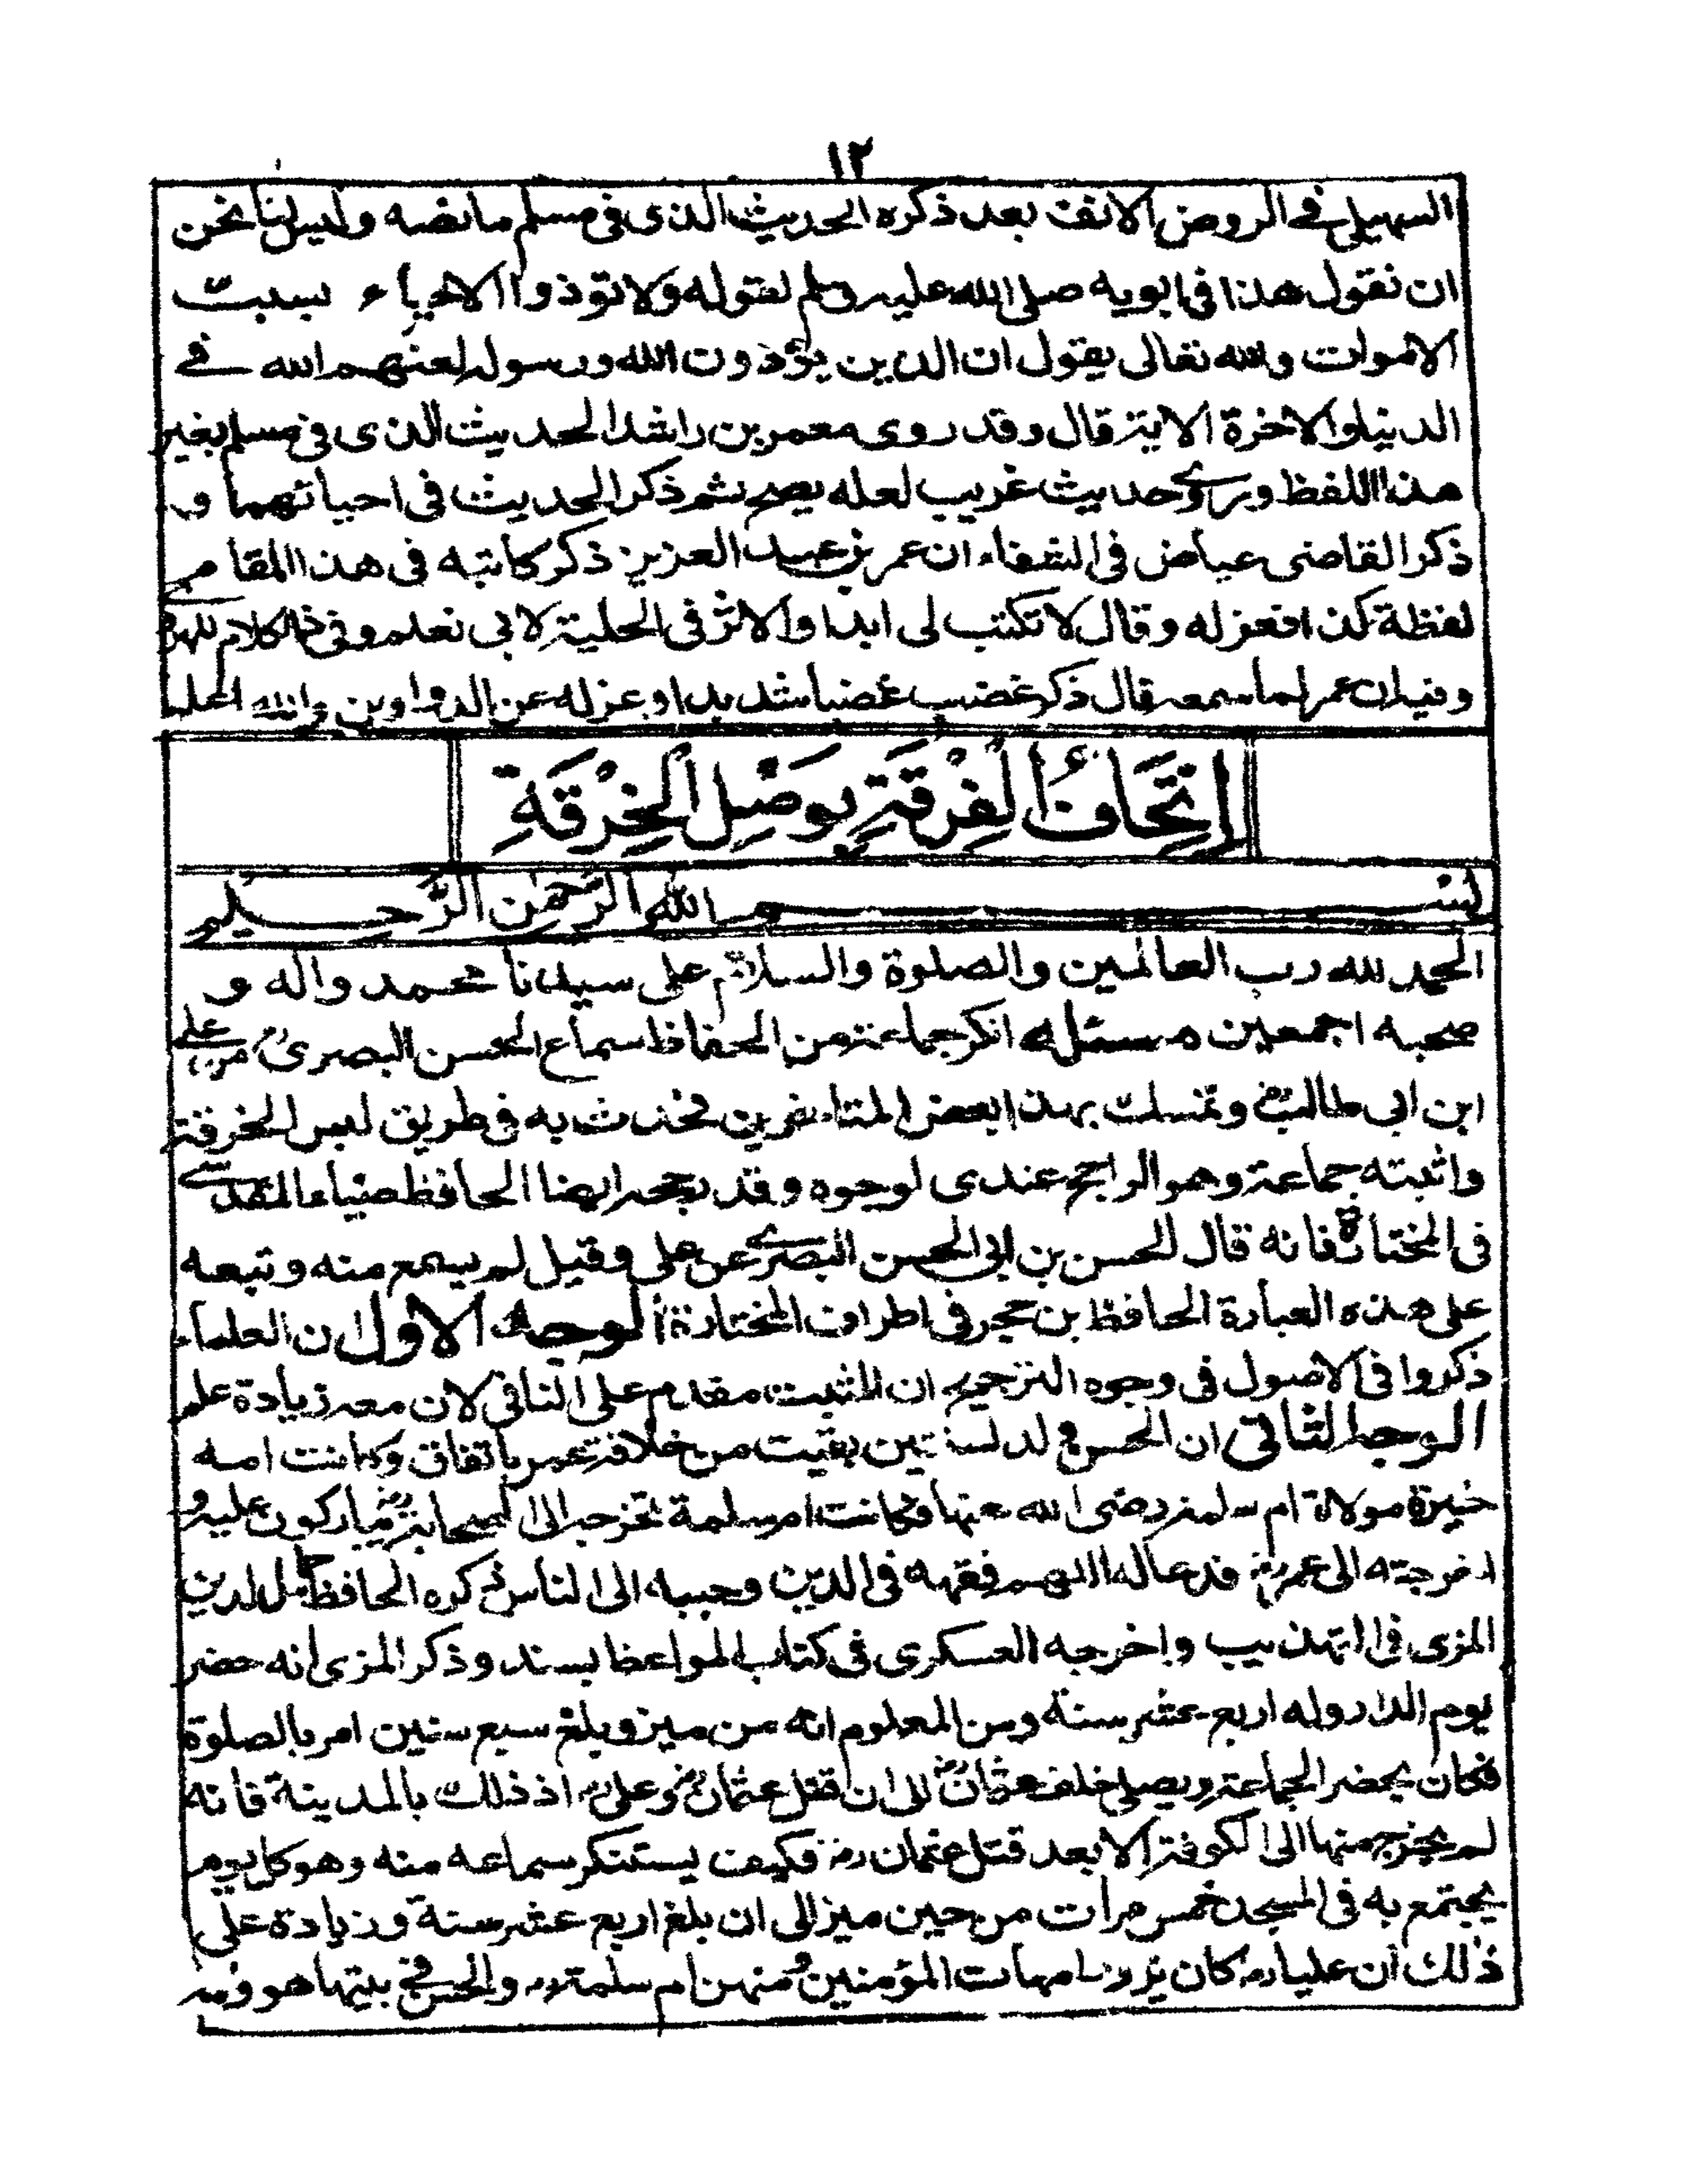 ١٢
السهيلي في الروض الانف بعد ذكره الحديث الذى فى مسلم ما نصه وليس لنا نحن
ان نقول هذا فى ابويه صلى الله عليه وسلم لقوله ولا تؤذوا الاحياء بسبب
الاموات والله تعالى يقول ان الذين يؤذون الله ورسوله لعنهم الله في
الدنيا والاخرة الاية قال وقد روى معمر بن راشد الحديث الذى فى مسلم بغير
هذا اللفظ وروى حديث غريب لعله يصح ثم ذكر الحديث فى احيائهما و
ذكر القاضى عياض فى الشفاء ان عمر بن عبد العزيز ذكر كاتبه فى هذا المقام
لفظة كذا فعزله وقال لا تكتب لى ابدا والاثر فى الحلية لابى نعيم وفى ذم الكلام للهروى
وفيه ان عمر لما سمعه قال ذكر غضب غضبا شديدا وعزله عن الدواوين والله اعلم
إتحاف الفرقة بوصل الخرقة
بسم الله الرحمن الرحيم
الحمد لله رب العالمين والصلوة والسلام على سيدنا محمد واله و
صحبه اجمعين مسئلة انكر جماعة من الحفاظ سماع الحسن البصرى من على
ابن ابى طالب رض وتمسك بهذا بعض المتاخرين فخدش به فى طريق لبس الخرقة
واثبته جماعة وهو الراجح عندى لوجوه وقد رجحه ايضا الحافظ ضياء المقدسي
فى المختارة فانه قال الحسن بن ابى الحسن البصري عن على وقيل لم يسمع منه وتبعه
على هذه العبارة الحافظ بن حجر فى اطراف المختارة الوجه الاول ان العلماء
ذكروا فى الاصول فى وجوه الترجيح ان المثبت مقدم على النافى لان معه زيادة علم
الوجه الثانى ان الحسن ولد لسنتين بقيت من خلافة عمر باتفاق وكانت امه
خيرة مولاة ام سلمة رضى الله عنها فكانت ام سلمة تخرجه الى الصحابة رض يباركون عليه و
اخرجته الى عمر رض فدعا له اللهم فقهه فى الدين وحببه الى الناس ذكره الحافظ جمال الدين
المزى فى التهذيب واخرجه العسكرى فى كتاب المواعظ بسنده وذكر المزى انه حضر
يوم الدار وله اربع عشر سنة ومن المعلوم انه من ميز وبلغ سبع سنين امر بالصلوة
فكان يحضر الجماعة ويصلى خلف عثمان رض الى ان قتل عثمان رض وعلى رض اذ ذلك بالمدينة فانه
لم يخرج منها الى الكوفة الا بعد قتل عثمان رض فكيف يستنكر سماعه منه وهو كل يوم
يجتمع به فى المسجد خمس مرات من حين ميز الى ان بلغ اربع عشر سنة وزيادة على
ذلك ان عليا رض كان يزور امهات المؤمنين ومنهن ام سلمة رض والحسن في بيتها هو وامه